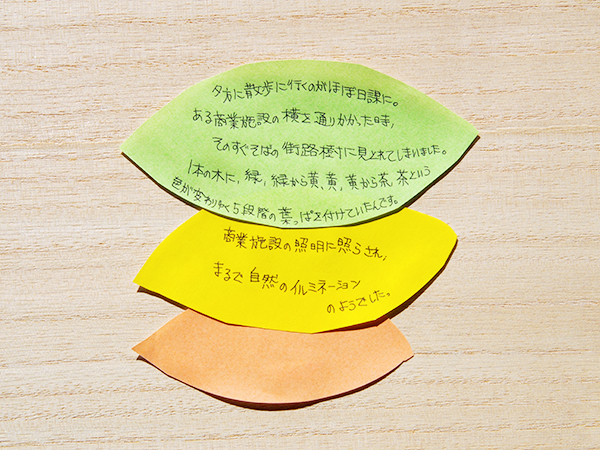 夕方に散歩に行くのがほぼ日課に。
ある商業施設の横を通りかかった時,
そのすぐそばの街路樹に見とれてしまいました。
1本の木に,緑,緑から黄,黄,黄から茶,茶という
色が変わりゆく5段階の葉っぱを付けていたんです。
商業施設の照明に照らされ,
まるで自然のイルミネーション
のようでした。